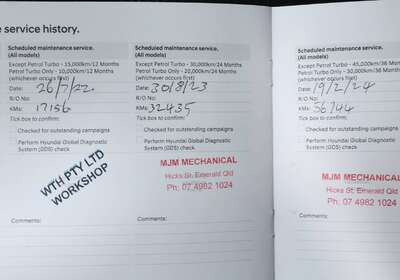 e service history.
Scheduled maintenance service.
(All models)
Except Petrol Turbo - 15,000km/12 Months
Petrol Turbo Only - 10,000km/12 Months
(whichever occurs first)
Date: 26/7/22.
R/O No:
KMs: 17156
Tick box to confirm:
Checked for outstanding campaigns
Perform Hyundai Global Diagnostic
System (GDS) check.
WTH PTY LTD
WORKSHOP
Comments:
Scheduled maintenance service.
(All models)
Except Petrol Turbo - 30,000km/24 Months
Petrol Turbo Only - 20,000km/24 Months
(whichever occurs first)
Date: 30/8/23
R/O No:
KMs: 32435
Tick box to confirm:
Checked for outstanding campaigns
Perform Hyundai Global Diagnostic
System (GDS) check.
MJM MECHANICAL
Hicks St, Emerald Qld
Ph: 07 4982 1024
Comments:
Scheduled maintenance service.
(All models)
Except Petrol Turbo - 45,000km/36
Petrol Turbo Only - 30,000km/36 Mo
(whichever occurs first)
Date: 19/2/24
R/O No:
KMs: 56744
Tick box to confirm:
Checked for outstanding campaign
Perform Hyundai Global Diagnosti
System (GDS) check.
MJM MECHANICAL
Hicks St, Emerald Qld
Ph: 07 4982 1024
Comments: